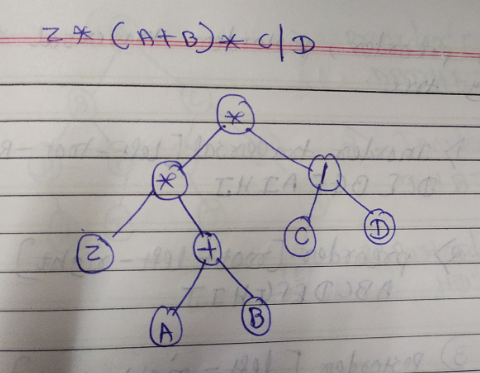 Z * (A+B) * C/D
*
* /
Z + C D
A B